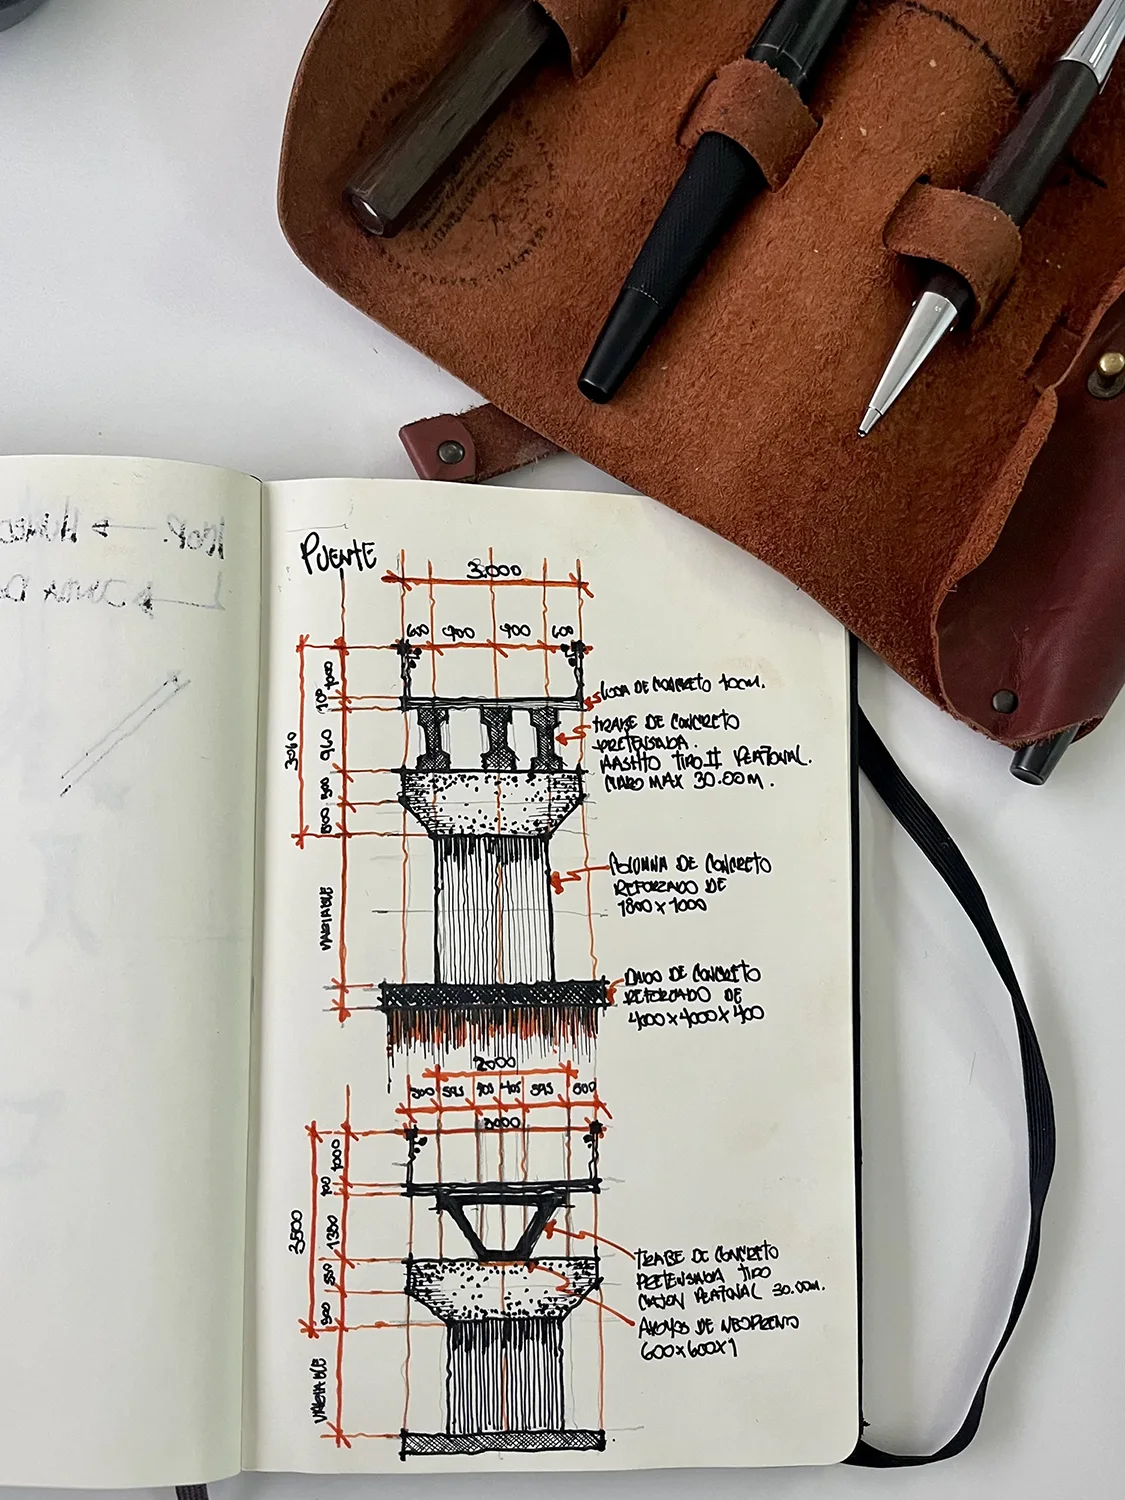 PUENTE
3.000
600 900 900 600
1000
100
3060
960
500
500
LOSA DE CONCRETO 10CM.
TRABE DE CONCRETO
PRETENSADA.
AASHTO TIPO II PEATONAL.
CLARO MAX 30.00 M.
COLUMNA DE CONCRETO
REFORZADO DE
1800 x 1000
VARIABLE
DADO DE CONCRETO
REFORZADO DE
4000 x 4000 x 400
2000
500 595 405 405 595 500
3000
1000
100
3500
1300
500
500
TRABE DE CONCRETO
PRETENSADA TIPO
CAJON PEATONAL 30.00m.
APOYOS DE NEOPRENO
600x600x1
VARIABLE